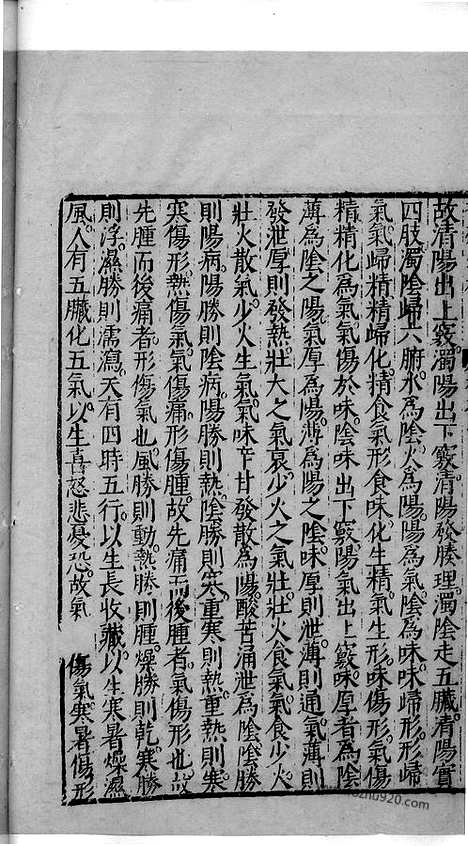 故清陽出上竅濁陽出下竅清陽發腠理濁陰走五臟清陽實
四肢濁陰歸六腑水為陰火為陽陽為氣陰為味味歸形形歸
氣氣歸精精歸化精食氣形食味化生精氣生形味傷形氣傷
精精化為氣氣傷於味陰味出下竅陽氣出上竅味厚者為陰
薄為陰之陽氣厚為陽薄為陽之陰味厚則泄薄則通氣薄則
發泄厚則發熱壯大之氣衰少火之氣壯壯火食氣氣食少火
壯火散氣少火生氣氣味辛甘發散為陽酸苦涌泄為陰陰勝
則陽病陽勝則陰病陽勝則熱陰勝則寒重寒則熱重熱則寒
寒傷形熱傷氣氣傷痛形傷腫故先痛而後腫者氣傷形也故
先腫而後痛者形傷氣也風勝則動熱勝則腫燥勝則乾寒勝
則浮濕勝則濡瀉天有四時五行以生長收藏以生寒暑燥濕
風人有五臟化五氣以生喜怒悲憂恐故氣 傷氣寒暑傷形